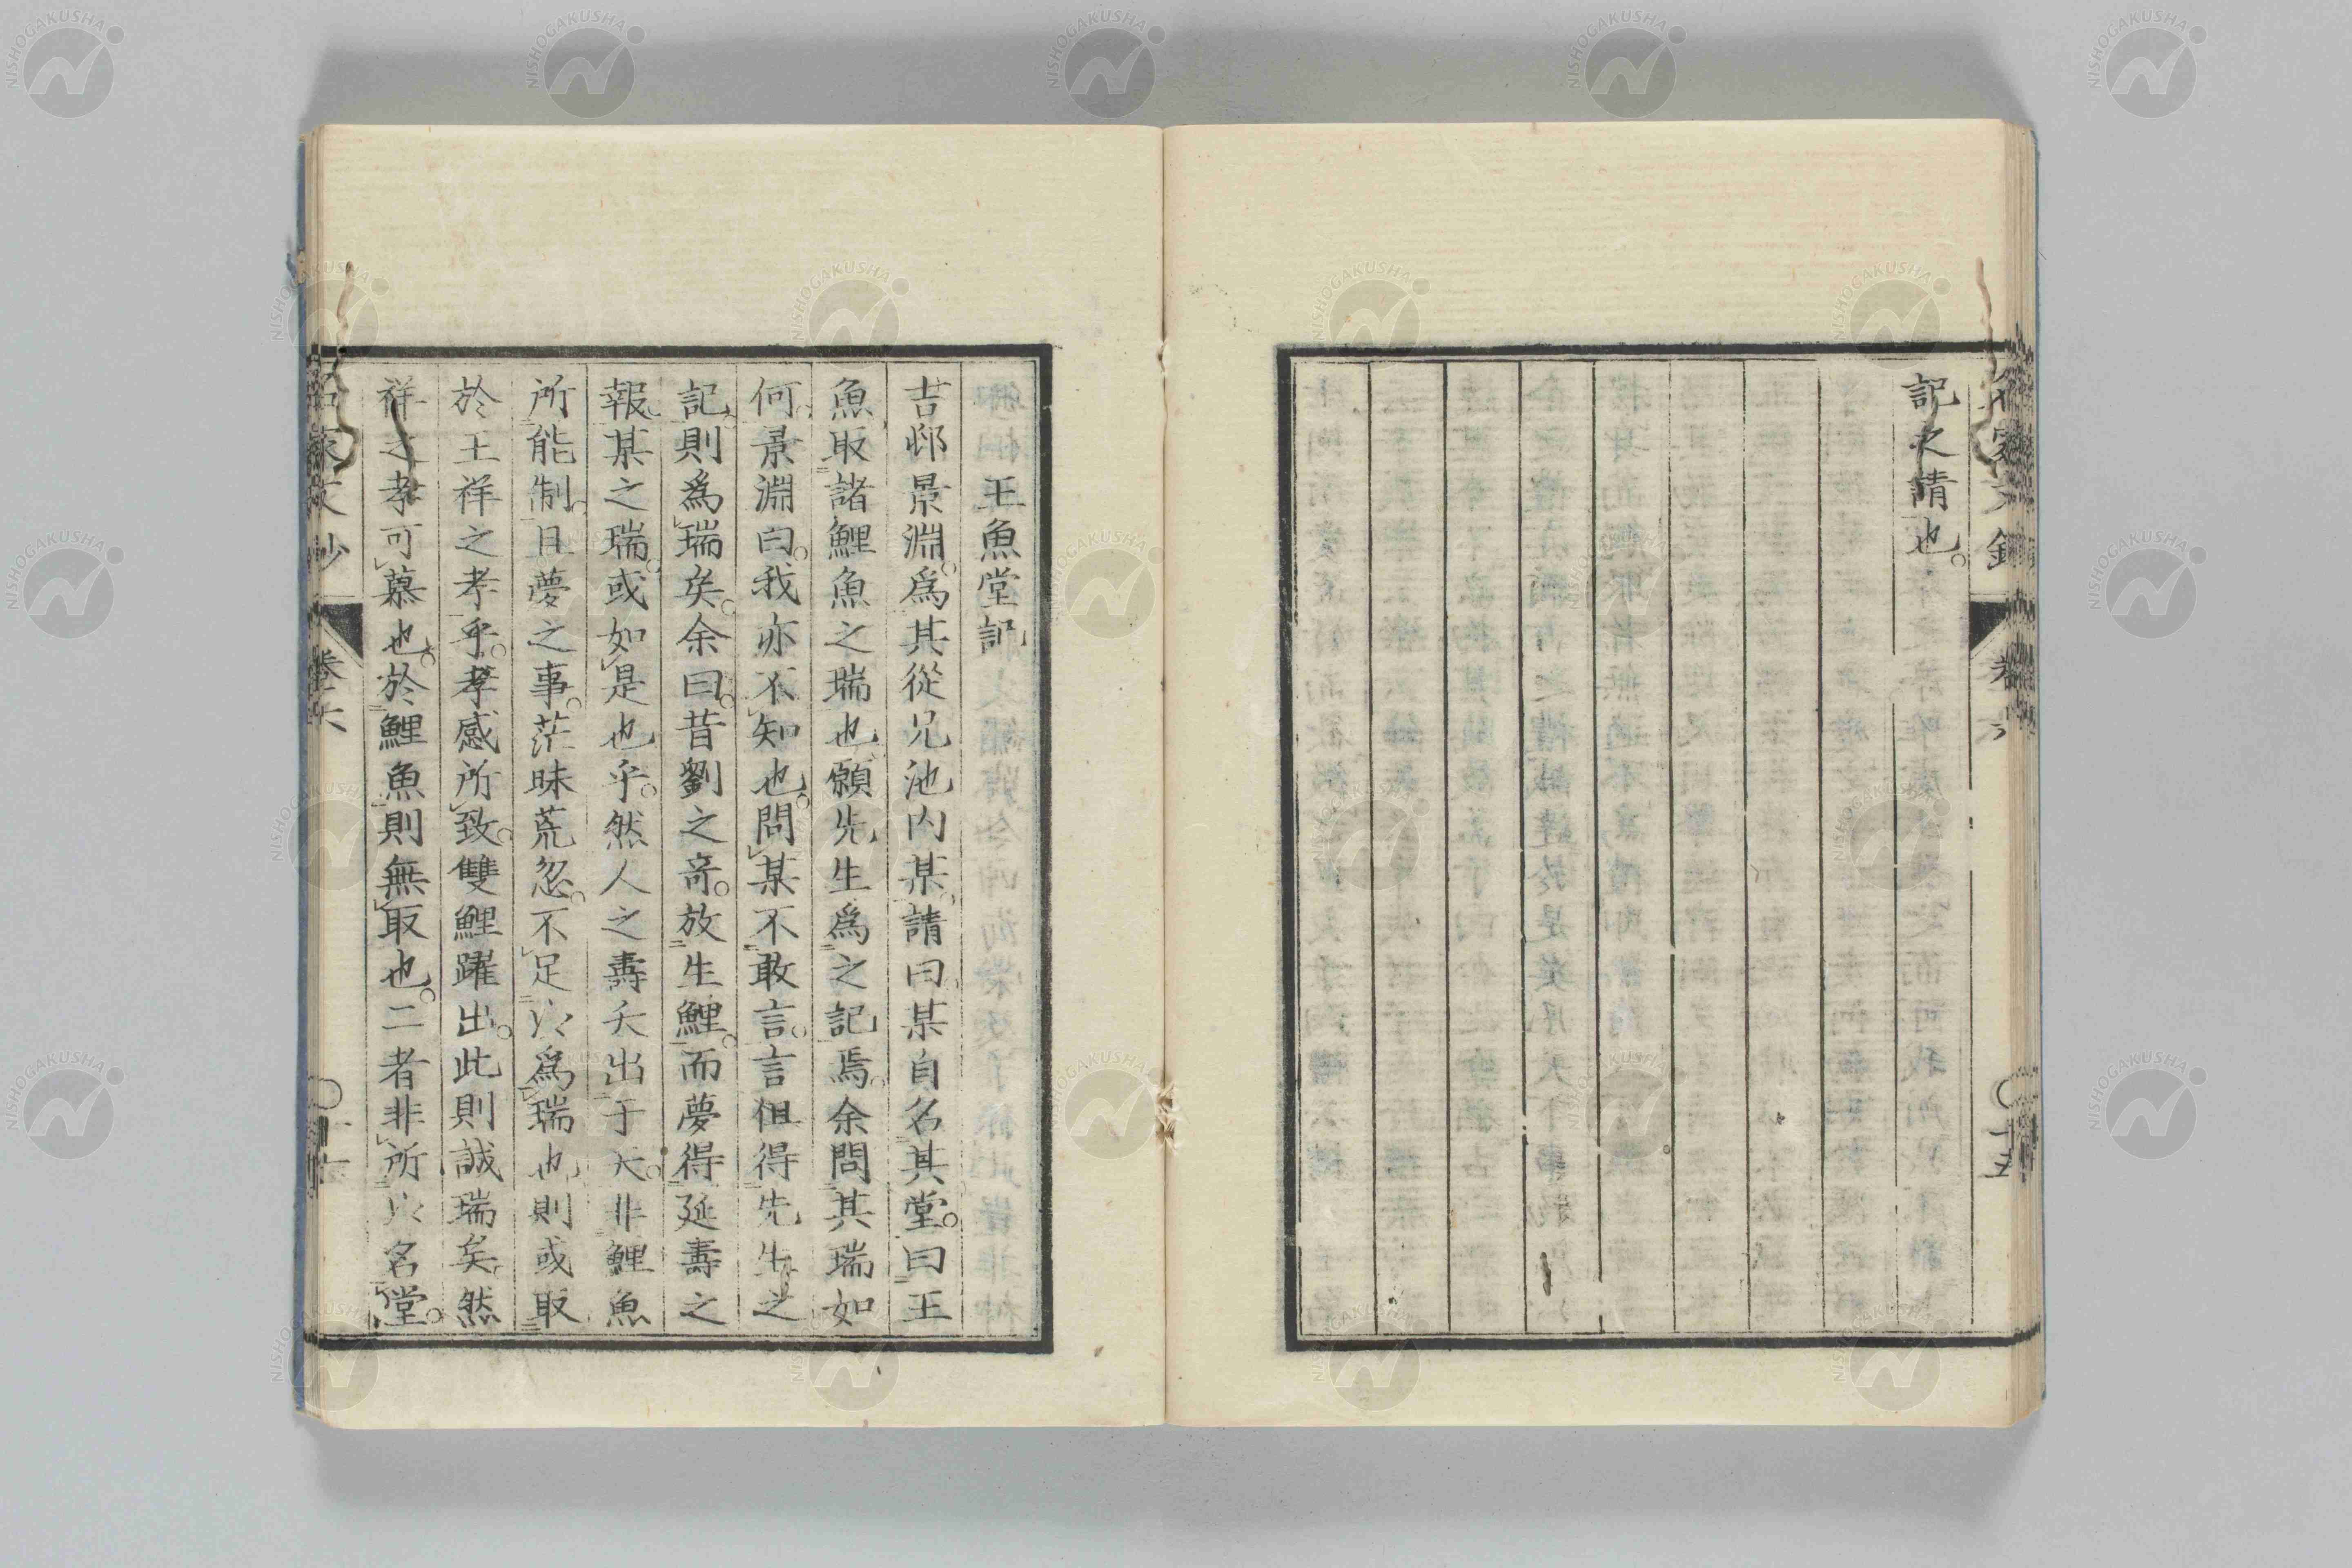 記之請也。
王魚堂記
吉邨景淵。爲其從兄池内某。請曰某自名其堂。曰王
魚取諸鯉魚之瑞也願先生爲之記焉。余問其瑞如
何。景淵曰。我亦不知也。問某不敢言。言但得先生之
記則爲瑞矣。余曰。昔劉之奇。放生鯉。而夢得延壽之
報某之瑞。或如是也乎。然人之壽夭出于天。非鯉魚
所能制。且夢之事。茫昧荒忽。不足以爲瑞也則或取
於王祥之孝乎。孝感所致。雙鯉躍出。此則誠瑞矣然
祥之孝可慕也。於鯉魚則無取也。二者非所以名堂。
卷六
十五
NISHOGAKUSHA